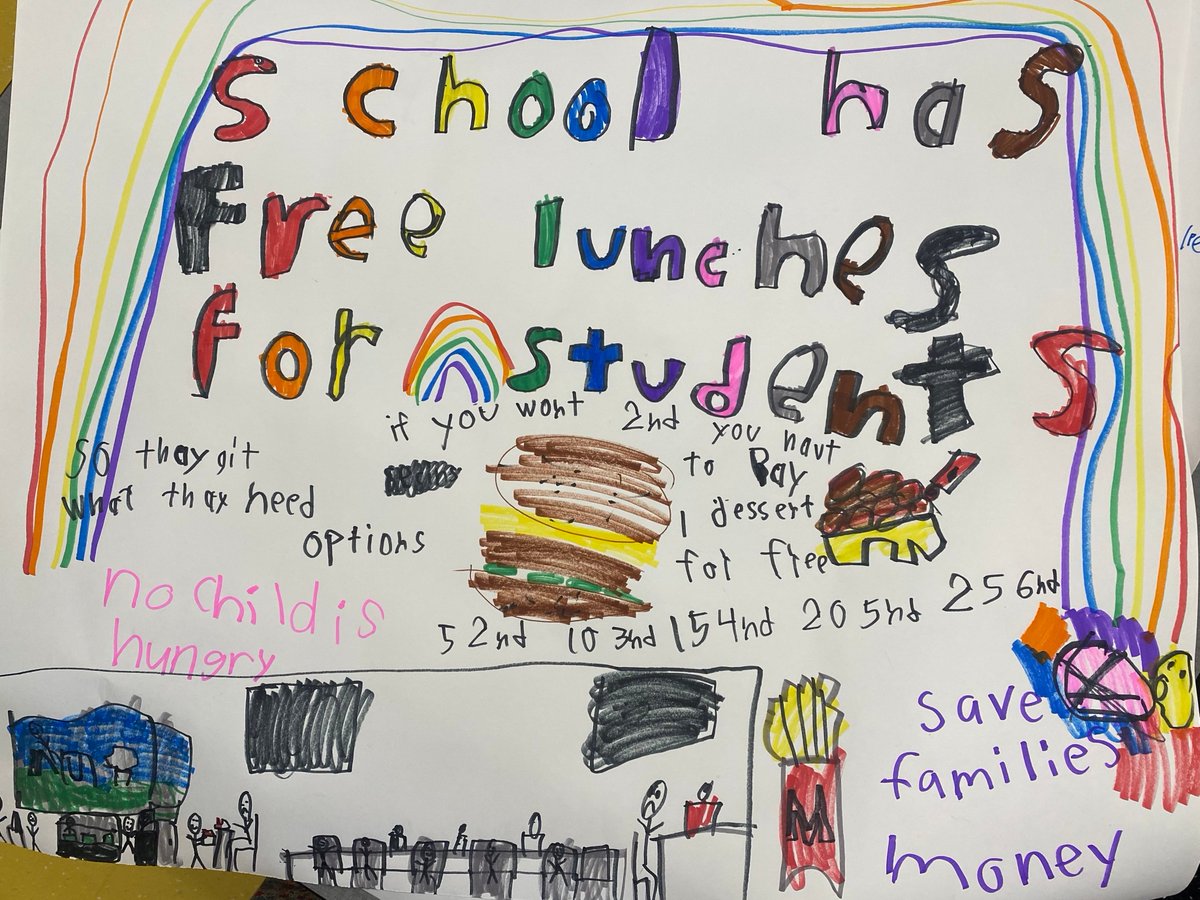 school has
Free lunches
for students
if you wont 2nd you havt
to Pay
1 dessert
for free
so thay git
what thay need
options
no child is
hungry
5 2nd 10 3nd 15 4nd 20 5nd 25 6nd
save
families
money
M